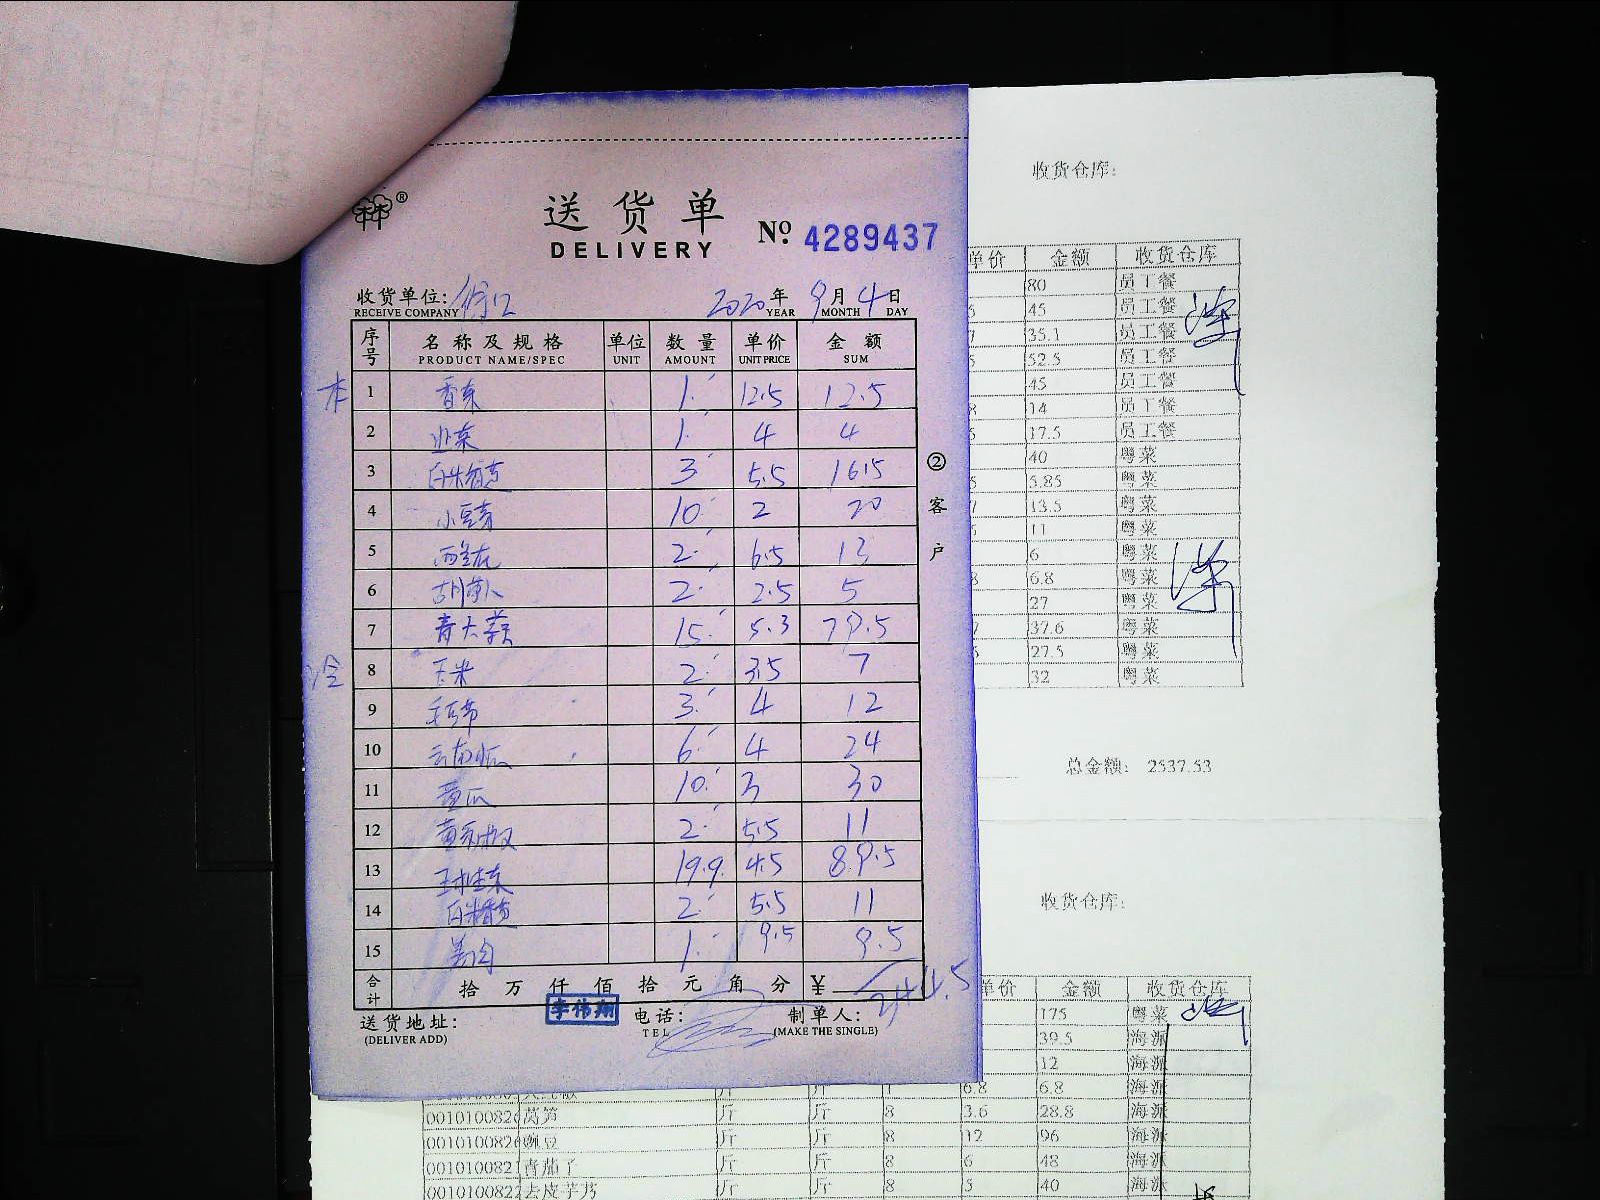 送货单
DELIVERY
No. 4289437
收货单位:
RECEIVE COMPANY
2020年 9月 4日
YEAR MONTH DAY
序号 名称及规格 单位 数量 单价 金额
PRODUCT NAME/SPEC UNIT AMOUNT UNIT PRICE SUM
1 香菜 1 12.5 12.5
2 韭菜 1 4 4
3 白米苋 3 5.5 16.5
4 小豆芽 10 2 20
5 西兰花 2 6.5 13
6 胡萝卜 2 2.5 5
7 青大蒜 15 5.3 79.5
冷
8 玉米 2 3.5 7
9 3 4 12
10 云南小瓜 6 4 24
11 黄瓜 10 3 30
12 黄彩椒 2 5.5 11
13 生菜 19.9 4.5 89.5
14 2 5.5 11
15 1 9.5 9.5
合计 拾 万 仟 佰 拾 元 角 分 ¥
李伟翔
送货地址:
(DELIVER ADD)
电话:
TEL
制单人:
(MAKE THE SINGLE)
② 客户
收货仓库:
单价 金额 收货仓库
80 员工餐
45 员工餐
35.1 员工餐
52.5 员工餐
45 员工餐
14 员工餐
17.5 员工餐
40 粤菜
5.85 粤菜
13.5 粤菜
11 粤菜
6 粤菜
6.8 粤菜
27 粤菜
37.6 粤菜
27.5 粤菜
32 粤菜
总金额: 2537.53
收货仓库:
单价 金额 收货仓库
175 粤菜
39.5 海派
12 海派
斤 斤 1 6.8 6.8 海派
001010082 莴笋 斤 斤 8 3.6 28.8 海派
001010082 豌豆 斤 斤 8 12 96 海派
001010082 青茄子 斤 斤 8 6 48 海派
001010082 去皮芋艿 斤 斤 8 5 40 海派